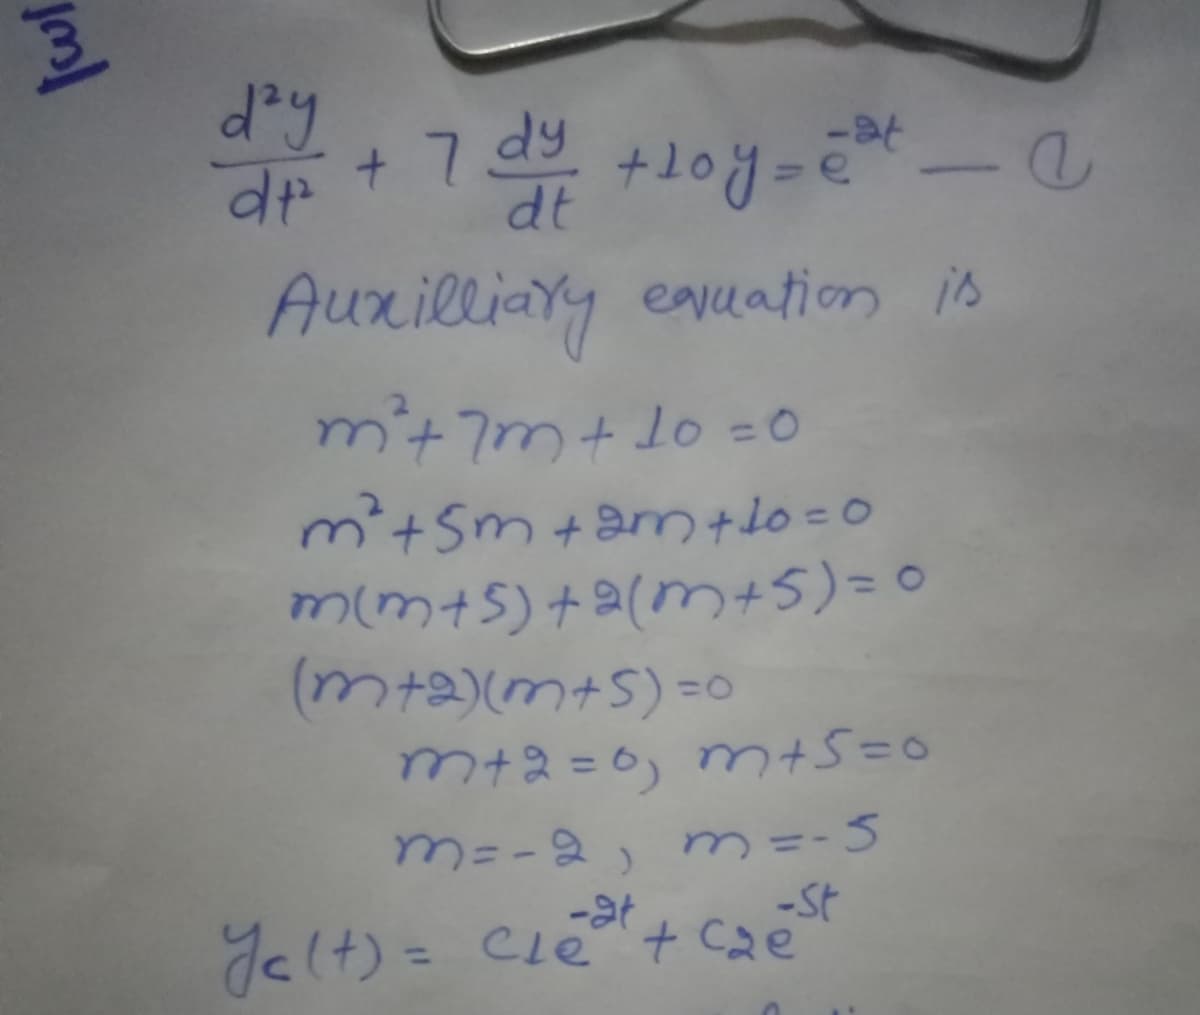 d²y/dt² + 7 dy/dt + 10y = e^-2t — ①
Auxilliary equation is
m² + 7m + 10 = 0
m² + 5m + 2m + 10 = 0
m(m+5) + 2(m+5) = 0
(m+2)(m+5) = 0
m+2 = 0, m+5 = 0
m = -2, m = -5
yc(t) = c1e^-2t + c2e^-5t